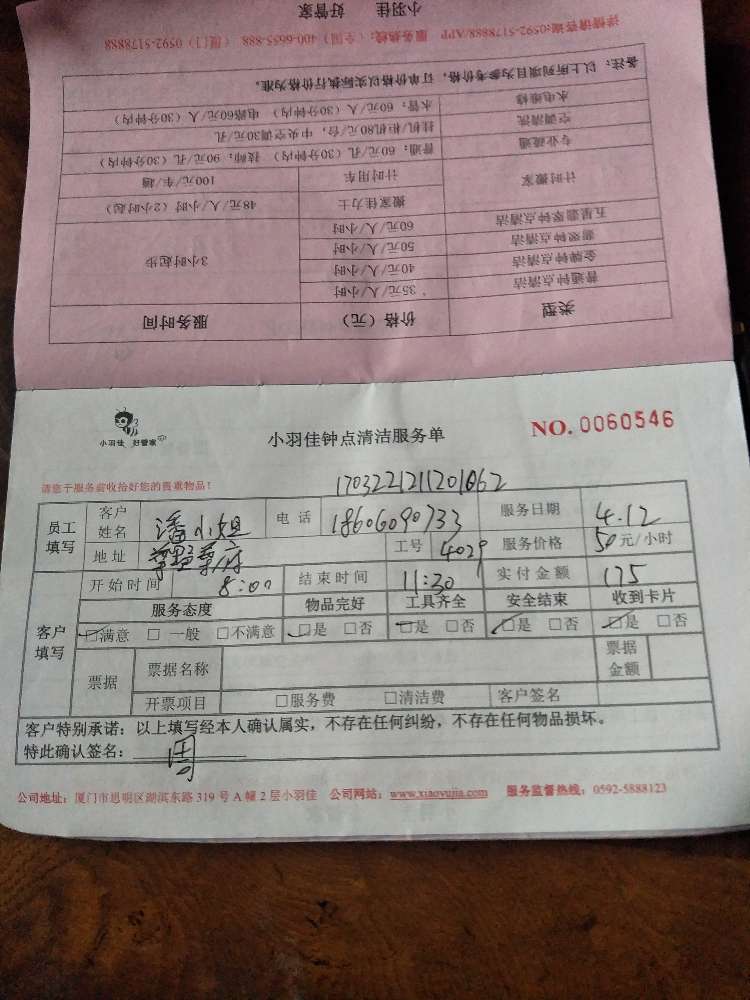 小羽佳 好管家
详情请咨询:0592-5178888/APP 服务热线:(全国)400-6655-888 (厦门)0592-5178888
备注:以上所列项目为参考价格,订单价格以实际执行价为准。
水电维修 水管:60元/人(30分钟内) 电路60元/人(30分钟内)
空调清洗 挂机柜机80元/台,中央空调30元/孔
专业疏通 普通:60元/孔(30分钟内) 技师:90元/孔(30分钟内)
计时搬家 计时用车 100元/车/趟
搬家佳力士 48元/人/小时(2小时起)
五星翡翠钟点清洁 60元/人/小时
翡翠钟点清洁 50元/人/小时
金牌钟点清洁 40元/人/小时
普通钟点清洁 35元/人/小时
3小时起步
类型 价格(元) 服务时间
小羽佳 好管家
小羽佳钟点清洁服务单
NO. 0060546
请您于服务前收拾好您的贵重物品!
1703221211201062
员工填写 客户姓名 潘小姐 电话 18606090733 服务日期 4.12
地址 工号 4029 服务价格 50元/小时
客户填写 开始时间 8:00 结束时间 11:30 实付金额 175
服务态度 物品完好 工具齐全 安全结束 收到卡片
☑满意 □一般 □不满意 ☑是 □否 ☑是 □否 ☑是 □否 ☑是 □否
票据 票据名称 票据金额
开票项目 □服务费 □清洁费 客户签名
客户特别承诺:以上填写经本人确认属实,不存在任何纠纷,不存在任何物品损坏。
特此确认签名:
公司地址:厦门市思明区湖滨东路 319 号 A 幢 2 层小羽佳 公司网站:www.xiaoyujia.com 服务监督热线:0592-5888123